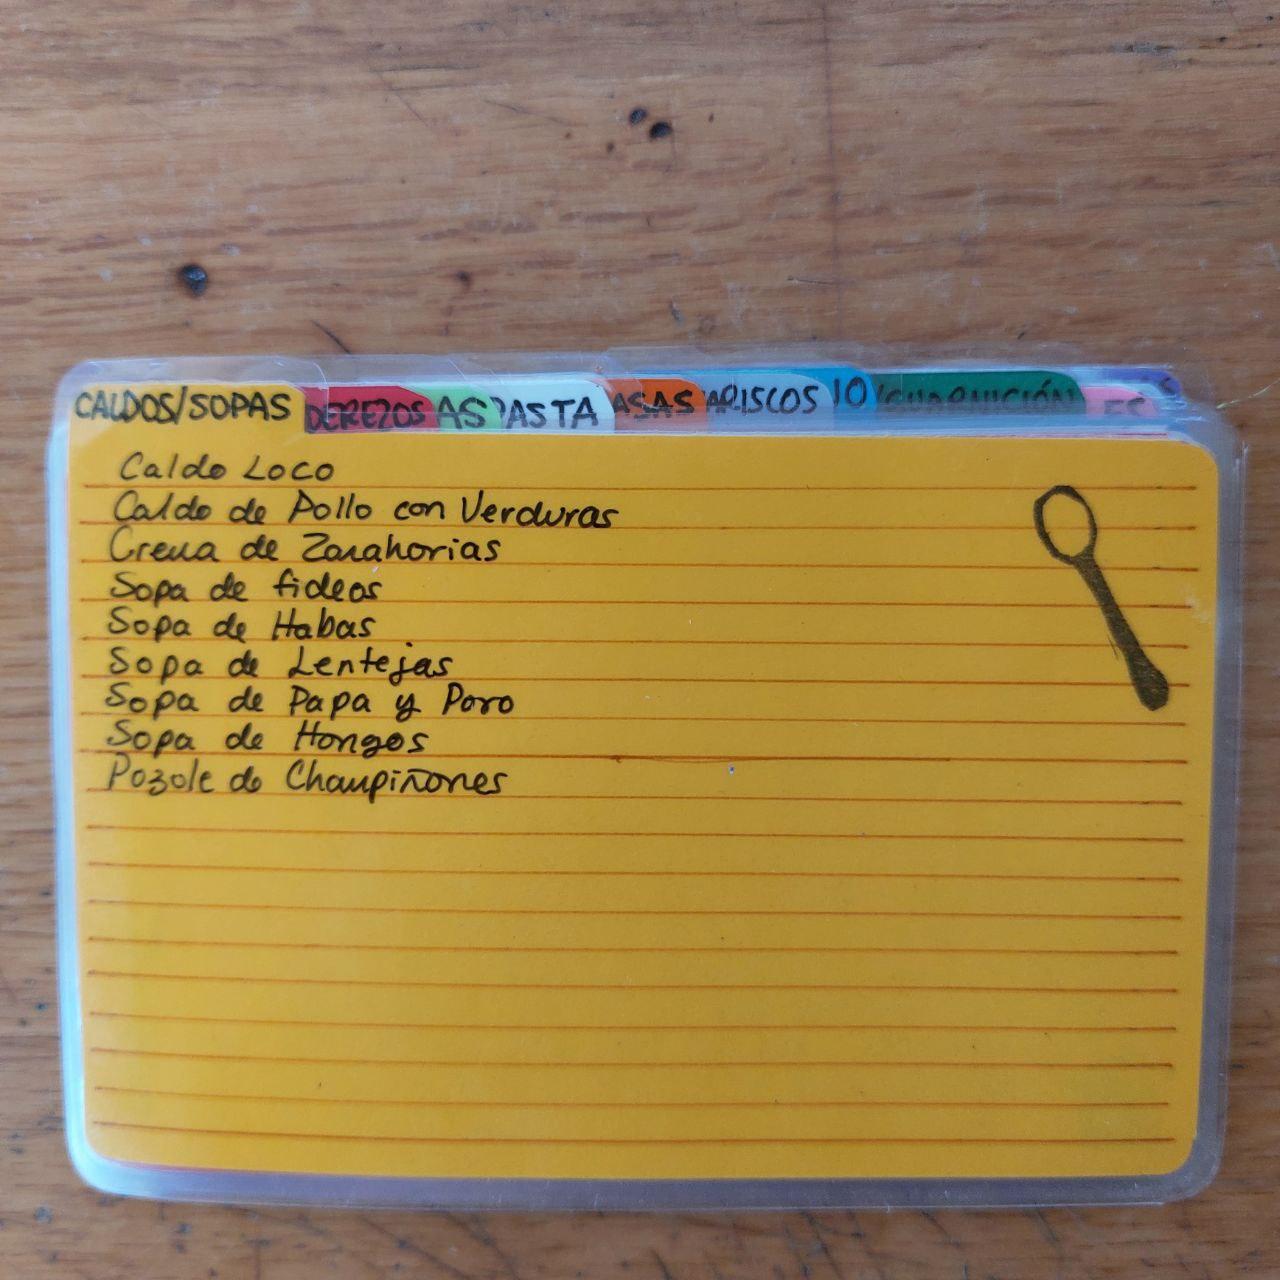 CALDOS/SOPAS DEREZOS AS PASTA ASAS ARISCOS IO /GUARNICIÓN ES S
Caldo Loco
Caldo de Pollo con Verduras
Crema de Zanahorias
Sopa de fideos
Sopa de Habas
Sopa de Lentejas
Sopa de Papa y Poro
Sopa de Hongos
Pozole de Champiñones